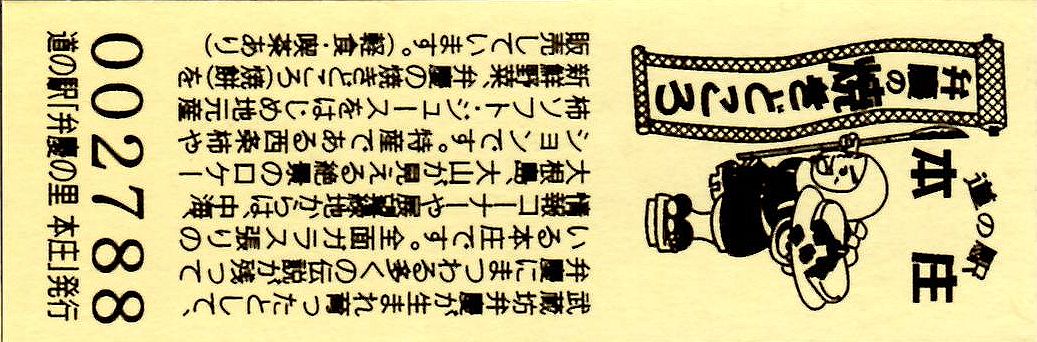 道の駅
本庄
弁慶の焼きどころ
武蔵坊弁慶が生まれ育ったとして、
弁慶にまつわる多くの伝説が残って
いる本庄です。全面ガラス張りの
情報コーナーや展望緑地からは、中海、
大根島、大山が見える絶景のロケー
ションです。特産である西条柿や
柿ソフト・ジュースをはじめ地元産
新鮮野菜、弁慶の焼きどころ(焼餅)を
販売しています。(軽食・喫茶あり)
002788
道の駅「弁慶の里 本庄」発行